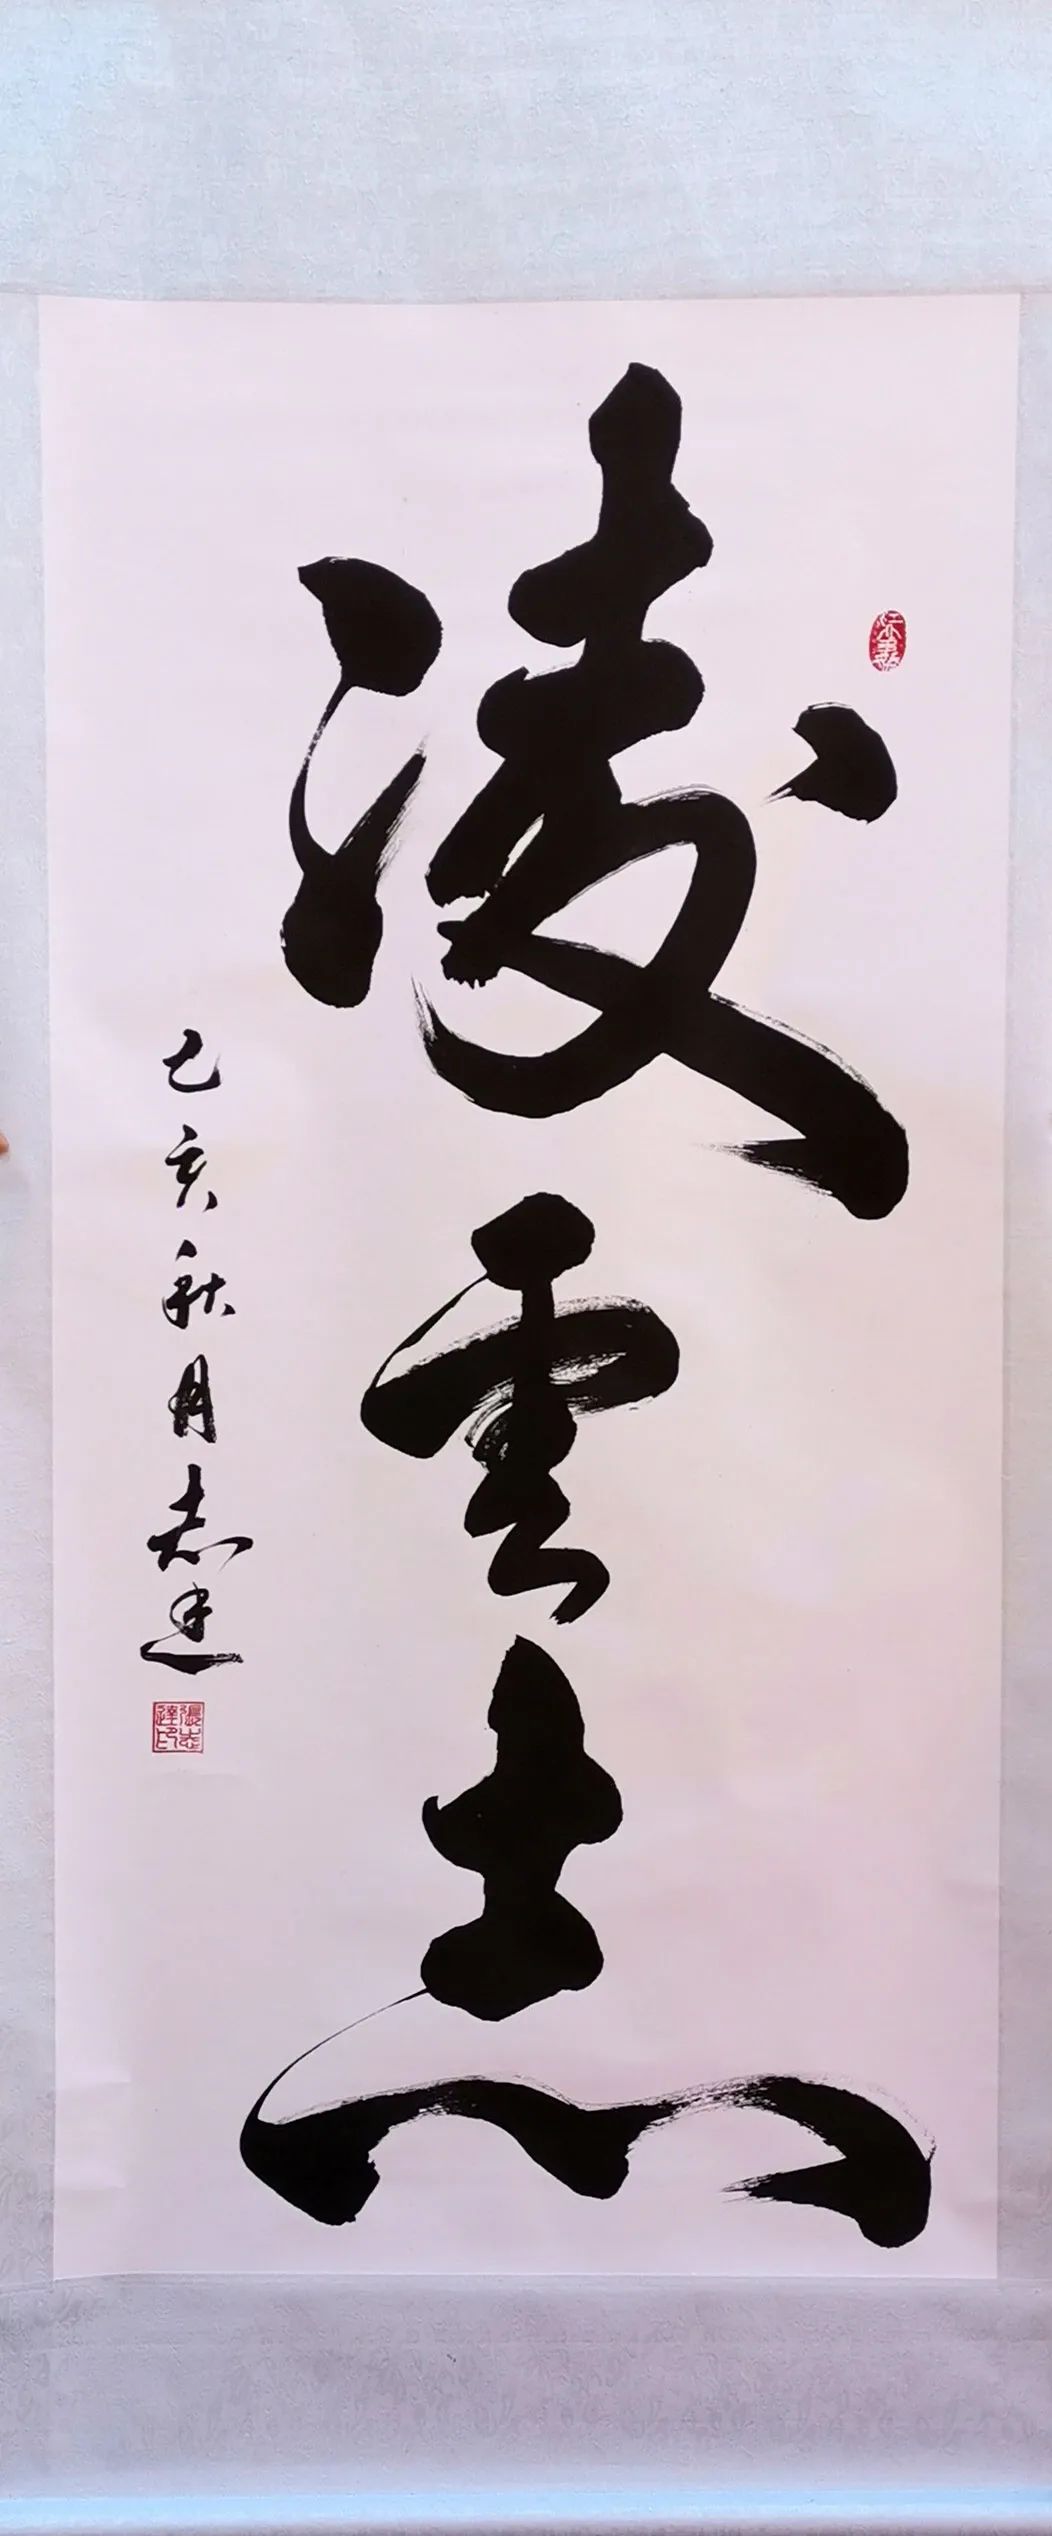 凌雲志
己亥秋月志達
張志達印